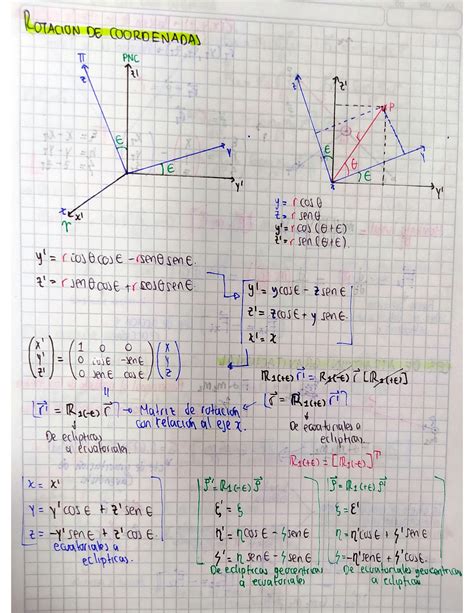 ROTACION DE COORDENADAS
π
PNC
z
z'
ε
y
ε
y'
x
x'
γ
z
z'
P
ε
r
θ
y
ε
y'
y = r cosθ
z = r senθ
y' = r cos (θ+ε)
z' = r sen (θ+ε)
y' = r cosθ cosε - r senθ senε
z' = r senθ cosε + r cosθ senε
y' = y cosε - z senε
z' = z cosε + y senε
x' = x
(x' y' z') = (1 0 0 0 cosε -senε 0 senε cosε) (x y z)
R1(+ε) r⃗' = R1(-ε) r⃗ [R1(+ε)]
[r⃗' = R1(-ε) r⃗] → Matriz de rotación con relación al eje x.
[r⃗ = R1(+ε) r⃗']
De eclipticas a ecuatoriales.
De ecuatoriales a eclipticas.
R1(+ε) = [R1(-ε)]ᵀ
x = x'
y = y' cosε + z' senε
z = -y' senε + z' cosε
ecuatoriales a eclipticas.
ρ⃗' = R1(-ε) ρ⃗
ξ' = ξ
η' = η cosε - ζ senε
ζ' = η senε - ζ senε
De eclipticas geocentricas a ecuatoriales
ρ⃗ = R1(+ε) ρ⃗'
ξ = ξ'
η = η' cosε + ζ' senε
ζ = -η' senε + ζ' cosε.
De ecuatoriales geocentricas a eclipticas